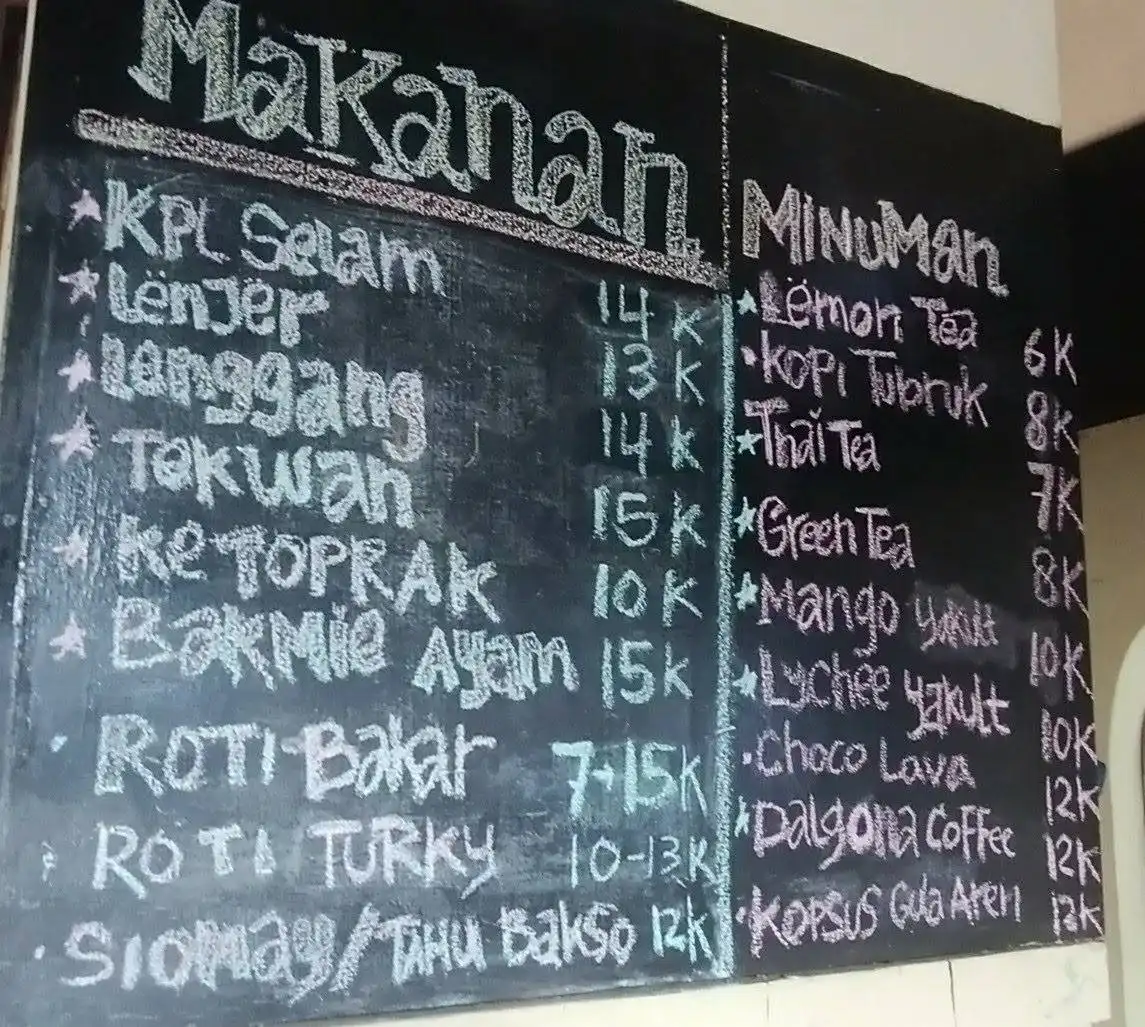 Makanan
KPL Selam 14K
Lënjër 13K
Lenggang 14K
Tekwan 15K
KeTOPRAK 10K
BakMie Ayam 15K
ROTI Bakar 7-15K
ROTI TURKY 10-13K
Siomay/Tahu Bakso 12K
MINUMan
Lëmon Tea 6K
Kopi Tubruk 8K
Thai Tea 7K
Green Tea 8K
Mango Yakult 10K
Lychee Yakult 10K
Choco Lava 12K
Dalgona Coffee 12K
Kopsus Gula Aren 12K